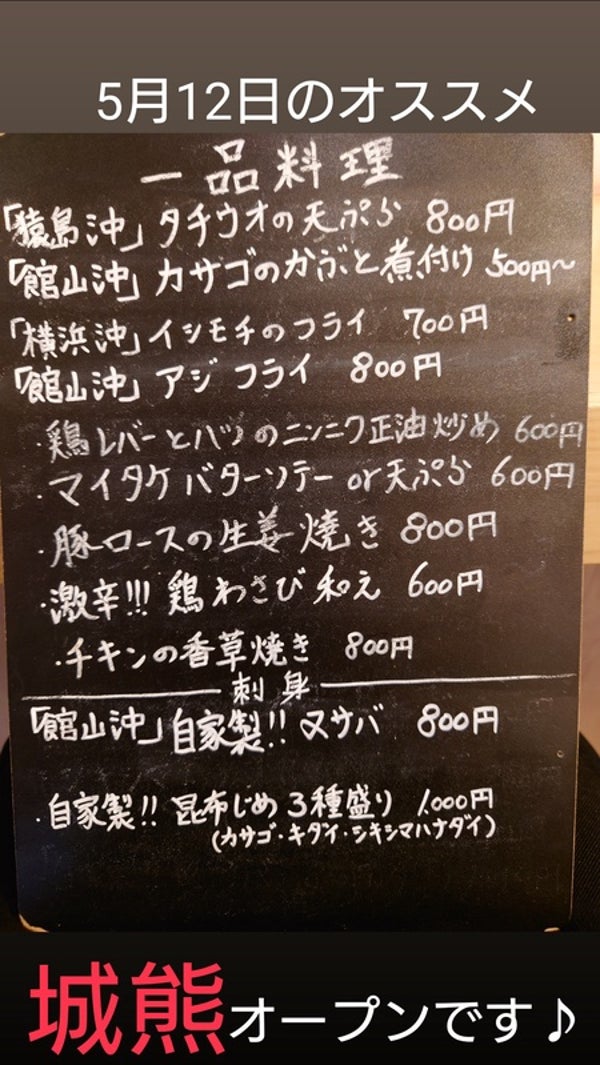 5月12日のオススメ
一品料理
「猿島沖」タチウオの天ぷら 800円
「館山沖」カサゴのかぶと煮付け 500円〜
「横浜沖」イシモチのフライ 700円
「館山沖」アジフライ 800円
・鶏レバーとハツのニンニク正油炒め 600円
・マイタケバターソテーor天ぷら 600円
・豚ロースの生姜焼き 800円
・激辛!!! 鶏わさび和え 600円
・チキンの香草焼き 800円
刺身
「館山沖」自家製!! 〆サバ 800円
・自家製!! 昆布じめ3種盛り 1,000円
(カサゴ・キダイ・シキシマハナダイ)
城熊オープンです♪